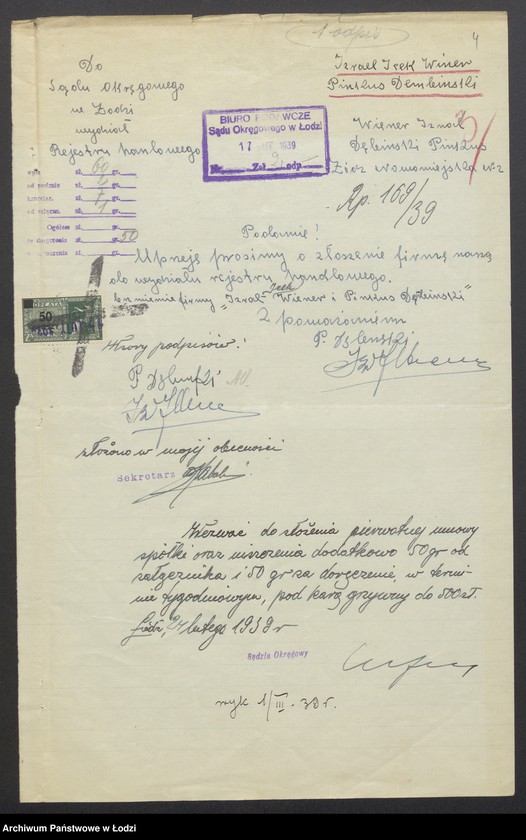 1 odpis
4
Do
Sądu Okręgowego
w Łodzi
wydział
Rejestru handlowego
Izrael Icek Winer
Pinkus Dembinski
BIURO PODAWCZE
Sądu Okręgowego w Łodzi
17 1939
Nr. Zał. odp.
Wiener Izrael
Dębinski Pinkus
Rp. 169/39
wpis zł. gr.
od podania zł. gr.
kancelar. zł. gr.
od załączn. zł. gr.
Ogółem
za doręczenie zł. gr. 50
zł. gr.
Podanie!
Uprzeję prosimy o złoszenie firmę naszą
do wydziału rejestru handlowego.
brzmienie firmy „Izrael Icek Wiener i Pinkus Dębinski"
Z poważaniem
OPŁATA
50
Wzory podpisów:
złożono w mojej obecności
Sekretarz
Wezwać do złożenia pierwotnej umowy
spółki oraz uiszczenia dodatkowo 50 gr od
załącznika i 50 gr za doręczenie, w termi-
nie tygodniowym, pod karą grzywny do 500 zł.
Łódź, 24 lutego 1939 r
Sędzia Okręgowy
wyk 1/III. 39 r.
Archiwum Państwowe w Łodzi